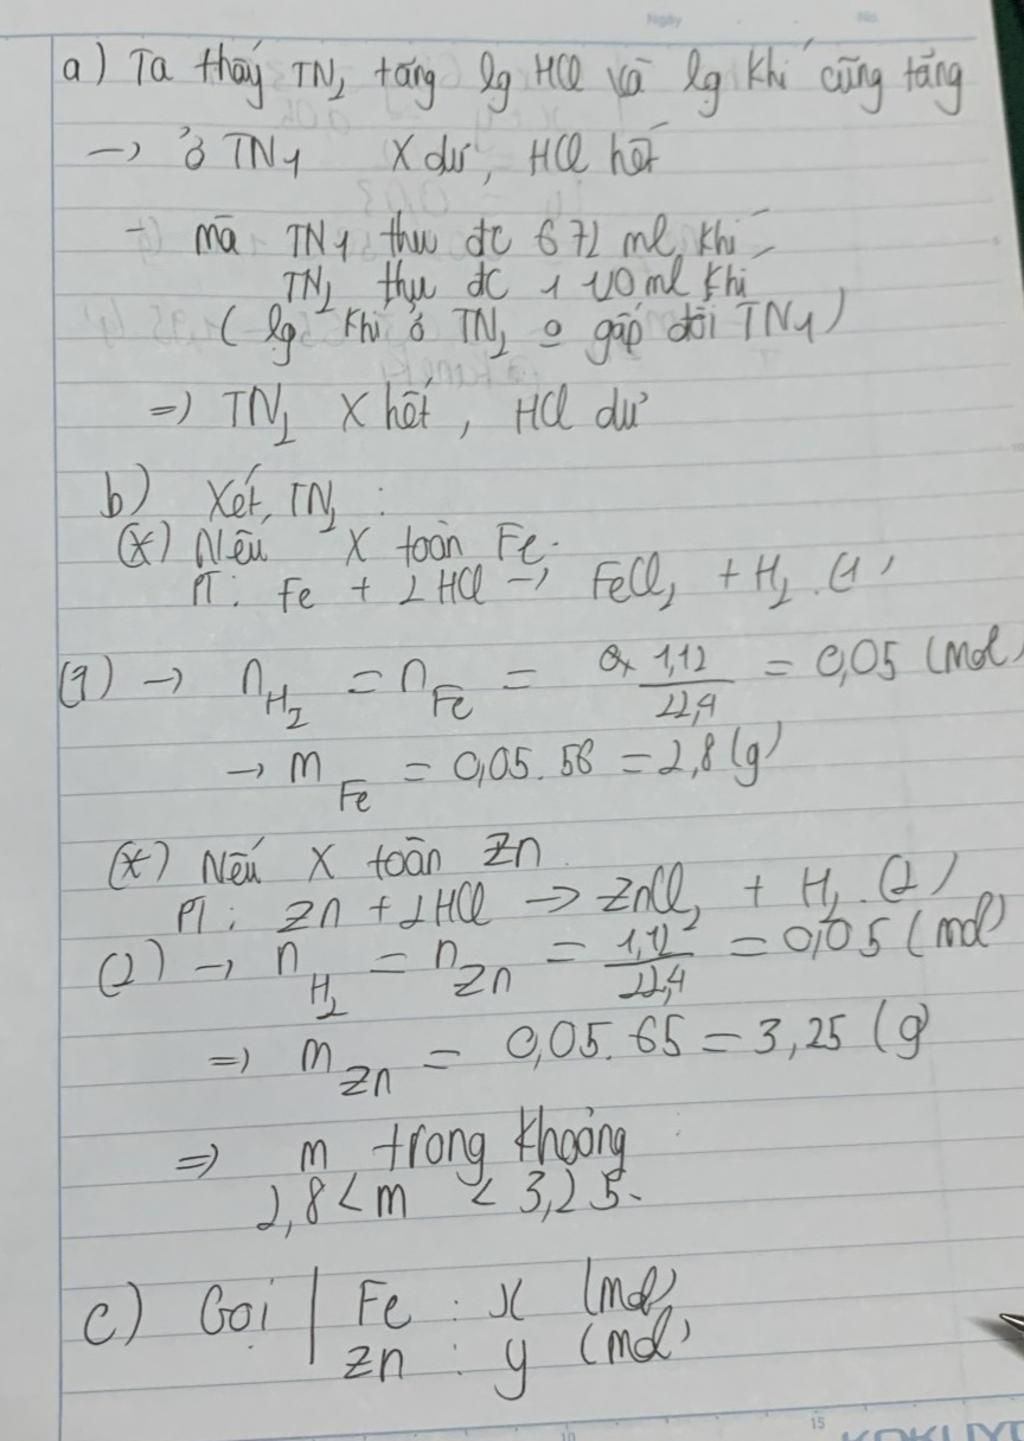 Ngày No.
a) Ta thấy TN2 tăng lg HCl và lg khí cũng tăng
→ ở TN1 X dư, HCl hết
+ mà TN1 thu đc 672 ml khí
TN2 thu đc 1120 ml khí
(lg khí ở TN2 o gấp đôi TN1)
=> TN2 X hết, HCl dư
b) Xét TN2 :
(*) Nếu X toàn Fe.
PT: Fe + 2HCl → FeCl2 + H2. (1)
(1) → nH2 = nFe = 1,12/22,4 = 0,05 (mol)
→ mFe = 0,05. 56 = 2,8 (g)
(*) Nếu X toàn Zn
PT: Zn + 2HCl → ZnCl2 + H2. (2)
(2) → nH2 = nZn = 1,12/22,4 = 0,05 (mol)
=> mZn = 0,05. 65 = 3,25 (g)
=> m trong khoảng
2,8 < m < 3,25.
c) Gọi | Fe : x (mol)
Zn : y (mol)
10 15
KOKUYO